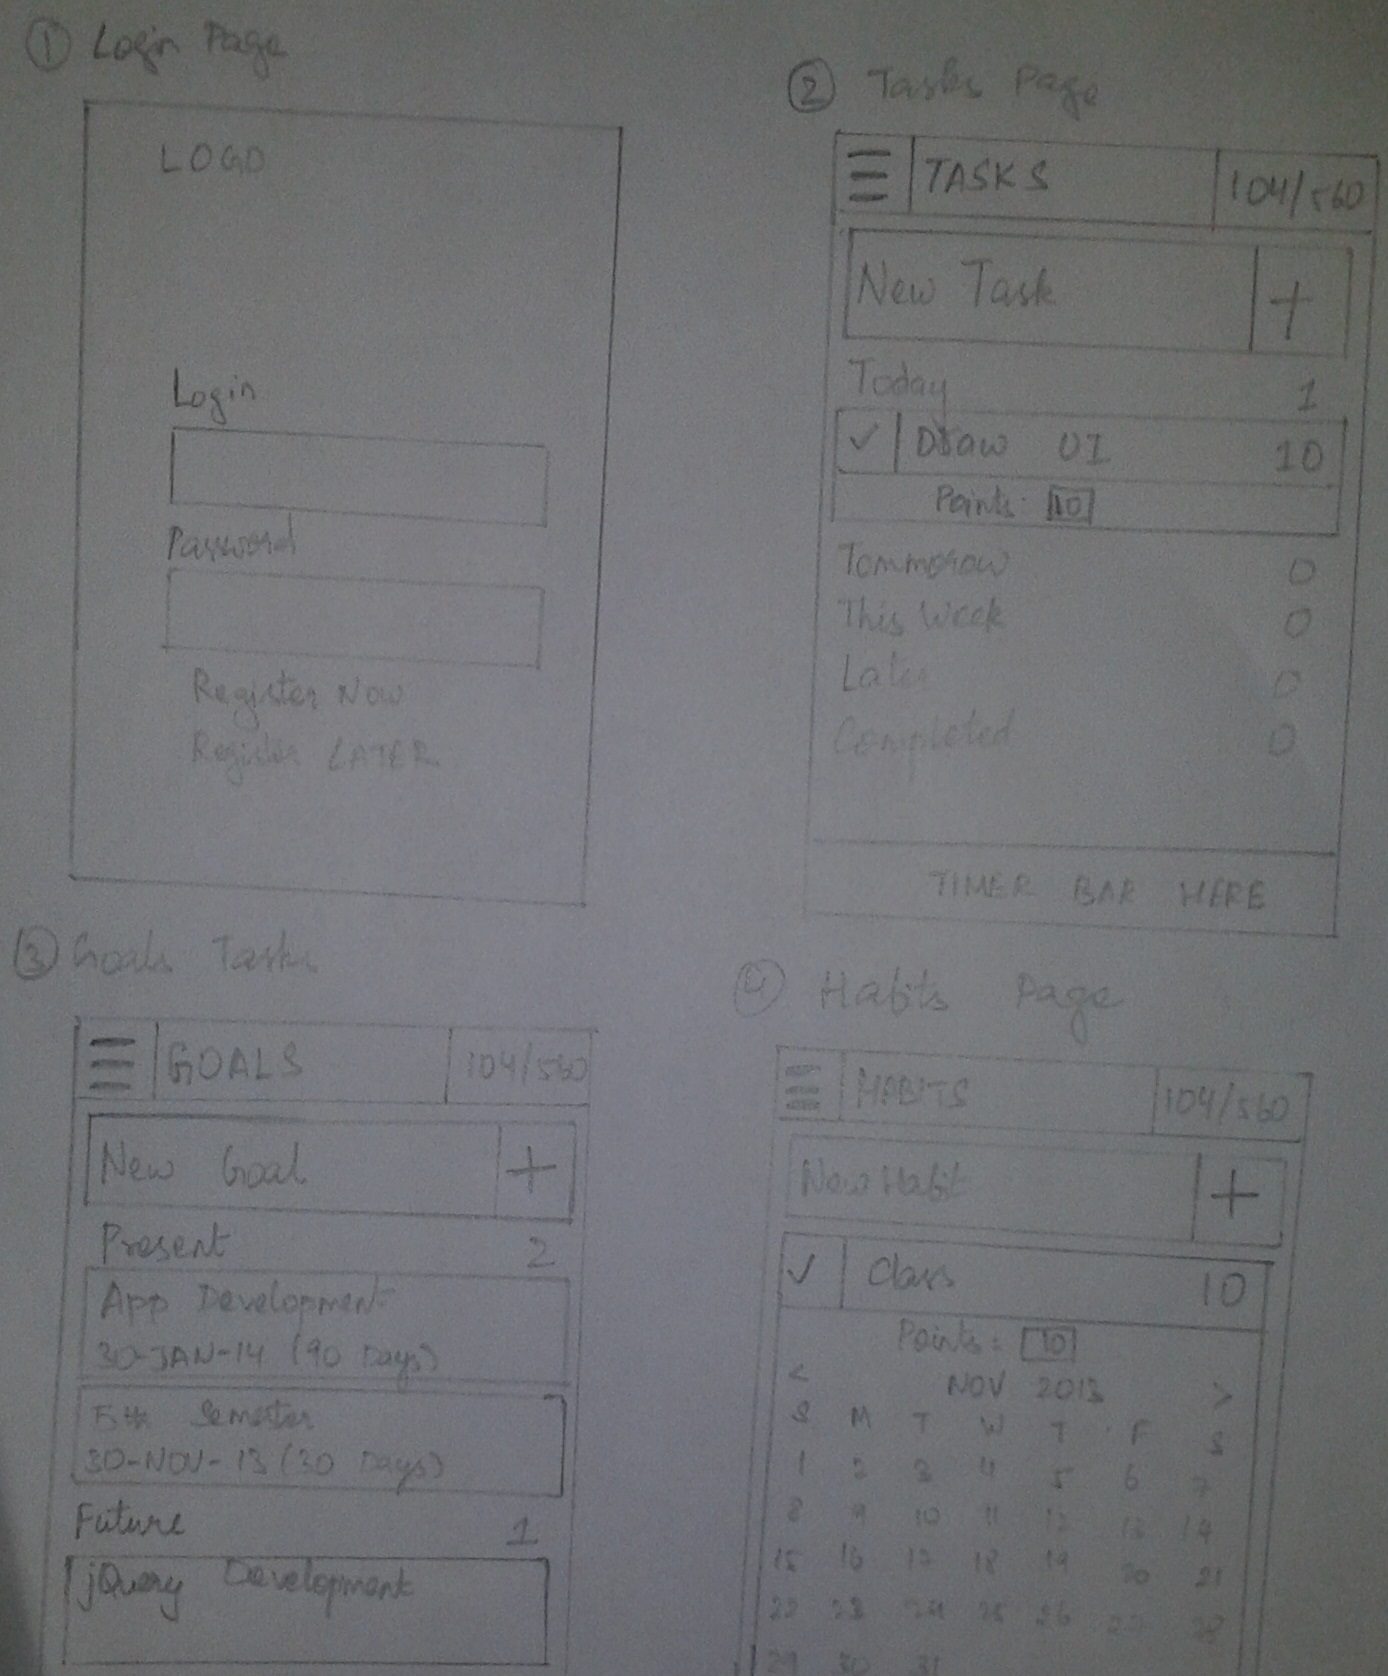 ① Login Page
LOGO
Login
Password
Register Now
Register LATER
② Tasks Page
TASKS 104/560
New Task +
Today 1
✓ Draw UI 10
Points: 10
Tommorow 0
This Week 0
Later 0
Completed 0
TIMER BAR HERE
③ Goals Tasks
GOALS 104/560
New Goal +
Present 2
App Development
30-JAN-14 (90 Days)
5th Semester
30-NOV-13 (30 Days)
Future 1
jQuery Development
④ Habits Page
HABITS 104/560
New Habit +
✓ Class 10
Points: 10
< NOV 2013 >
S M T W T F S
1 2 3 4 5 6 7
8 9 10 11 12 13 14
15 16 17 18 19 20 21
22 23 24 25 26 27 28
29 30 31